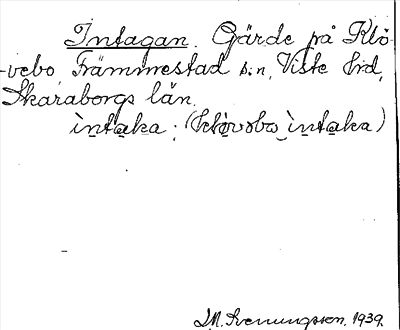 Intagan. Gärde på Klö-
-vebo, Främmestad s:n, Viste hd,
Skaraborgs län.
ìntaka; (kløvəbo ìntaka)
J.M. Svenungsson, 1939.